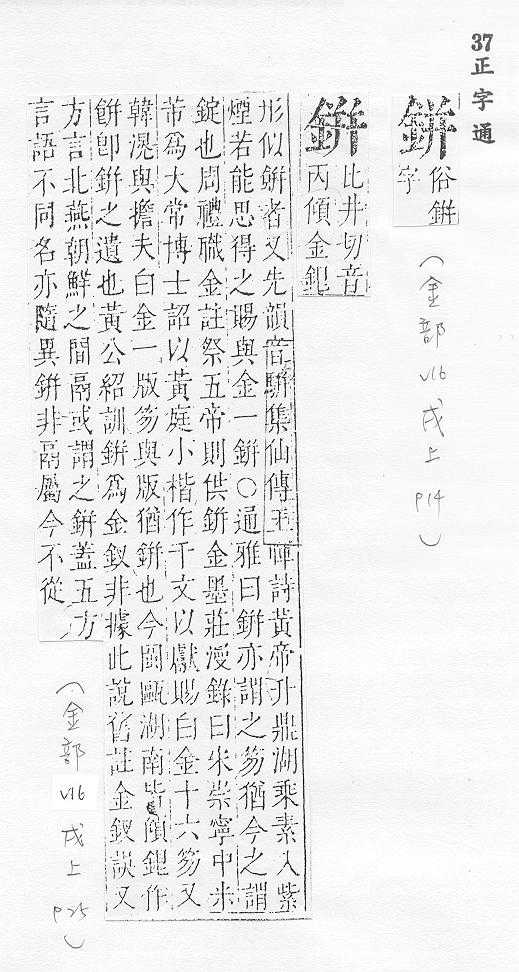 37正字通
鉼 俗鉼字
(金部 v16 戌上 p14)
鉼 比井切音丙傾金鈚
形似鉼者又先韻音駢集仙傳王禪詩黃帝升鼎湖乘素入紫
煙若能思得之賜與金一鉼○通雅曰鉼亦謂之笏猶今之謂
錠也周禮職金註祭五帝則供鉼金墨莊漫錄曰宋崇寧中米
芾爲大常博士詔以黃庭小楷作千文以獻賜白金十六笏又
韓滉與擔夫白金一版笏與版猶鉼也今閩甌湖南皆傾鈚作
餠卽鉼之遺也黃公紹訓鉼爲金釵非據此說舊註金釵誤又
方言北燕朝鮮之閒鬲或謂之鉼蓋五方
言語不同名亦隨異鉼非鬲屬今不從
(金部 v16 戌上 p25)